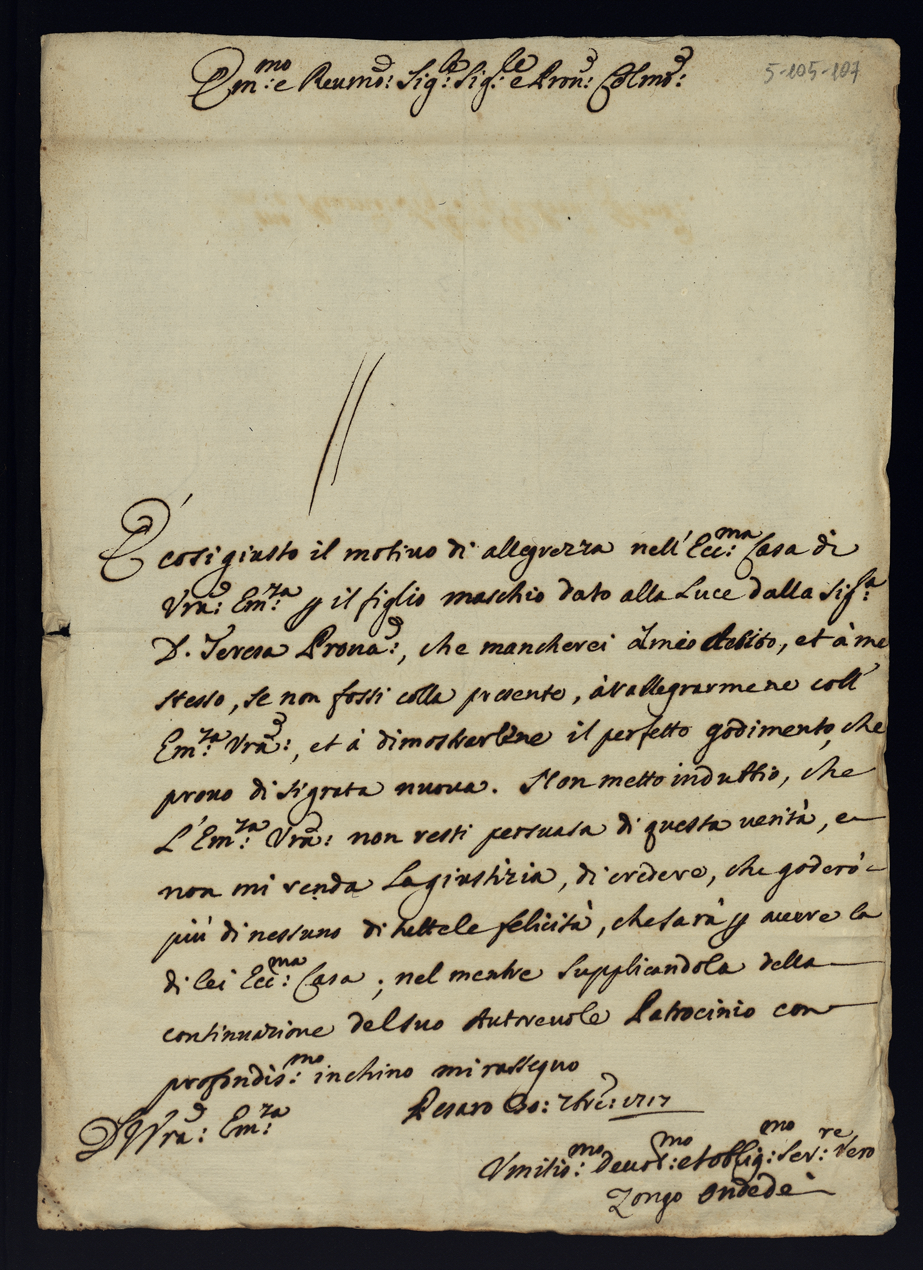 Em:mo e Reumo: Sig:re Sig:re e Pron: Colmo:
5-105-107
È così giusto il motiuo di allegrezza nell'Ecc:ma Casa di
Vra: Em:za p il figlio maschio dato alla Luce dalla Sig:ra
D. Teresa Prona:, che mancherei al mio debito, et à me
stesso, se non fossi colla presente, à rallegrarmene coll'
Em:za Vra:, et à dimostrarLene il perfetto godimento, che
prouo di sì grata nuoua. Non metto in dubbio, che
L'Em:za Vra: non resti persuasa di questa verità, e
non mi renda La giustizia, di credere, che goderò
più di nessuno di tutte le felicità, che sarà p auere la
di lei Ecc:ma Casa; nel mentre Supplicandola della
continuazione del suo Autoreuole Patrocinio con
profondis:mo inchino mi rassegno
Pesaro 30: 7bre: 1717
D Vra: Em:za
Vmilis:mo Deuot:mo et obblig:mo Ser:re Vero
Zongo Ondedei